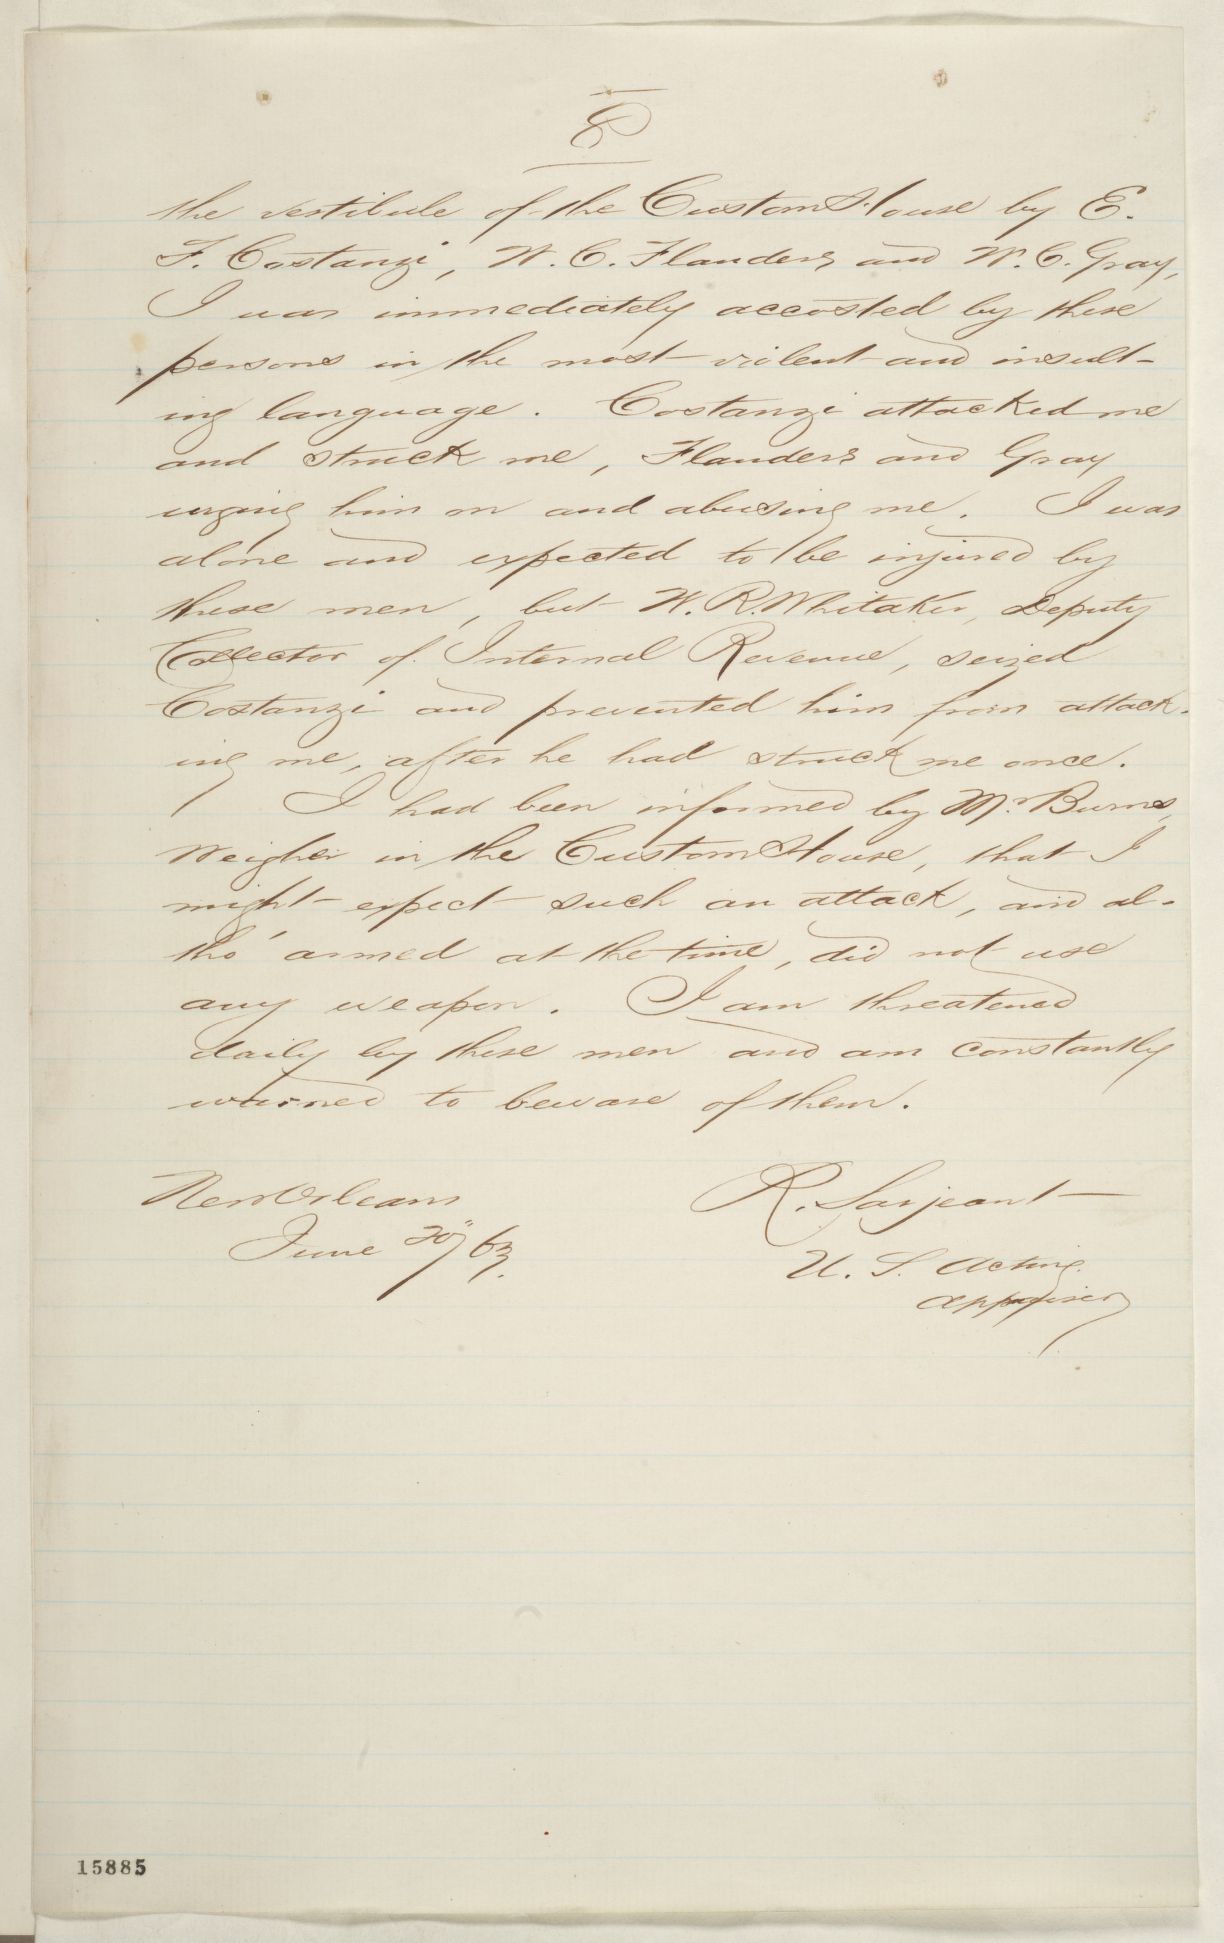 8
the vestibule of the Custom House by E.
F. Costanzi, W. C. Flanders and W. C. Gray,
I was immediately accosted by these
persons in the most violent and insult-
ing language. Costanzi attacked me
and struck me, Flanders and Gray
urging him on and abusing me. I was
alone and expected to be injured by
these men, but W. R. Whitaker, Deputy
Collector of Internal Revenue, seized
Costanzi and prevented him from attack-
ing me, after he had struck me once.
I had been informed by Mr. Burns,
Weigher in the Custom House, that I
might expect such an attack, and al-
tho' armed at the time, did not use
any weapon. I am threatened
daily by these men and am constantly
warned to beware of them.
New Orleans
June 20"/63.
R. Sarjeant
U. S. Acting
Appraiser
15885